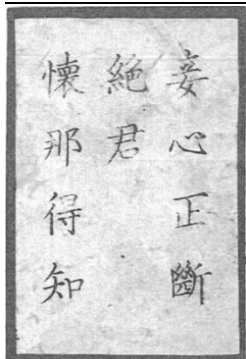 妾心正斷
絕君
懷那得知